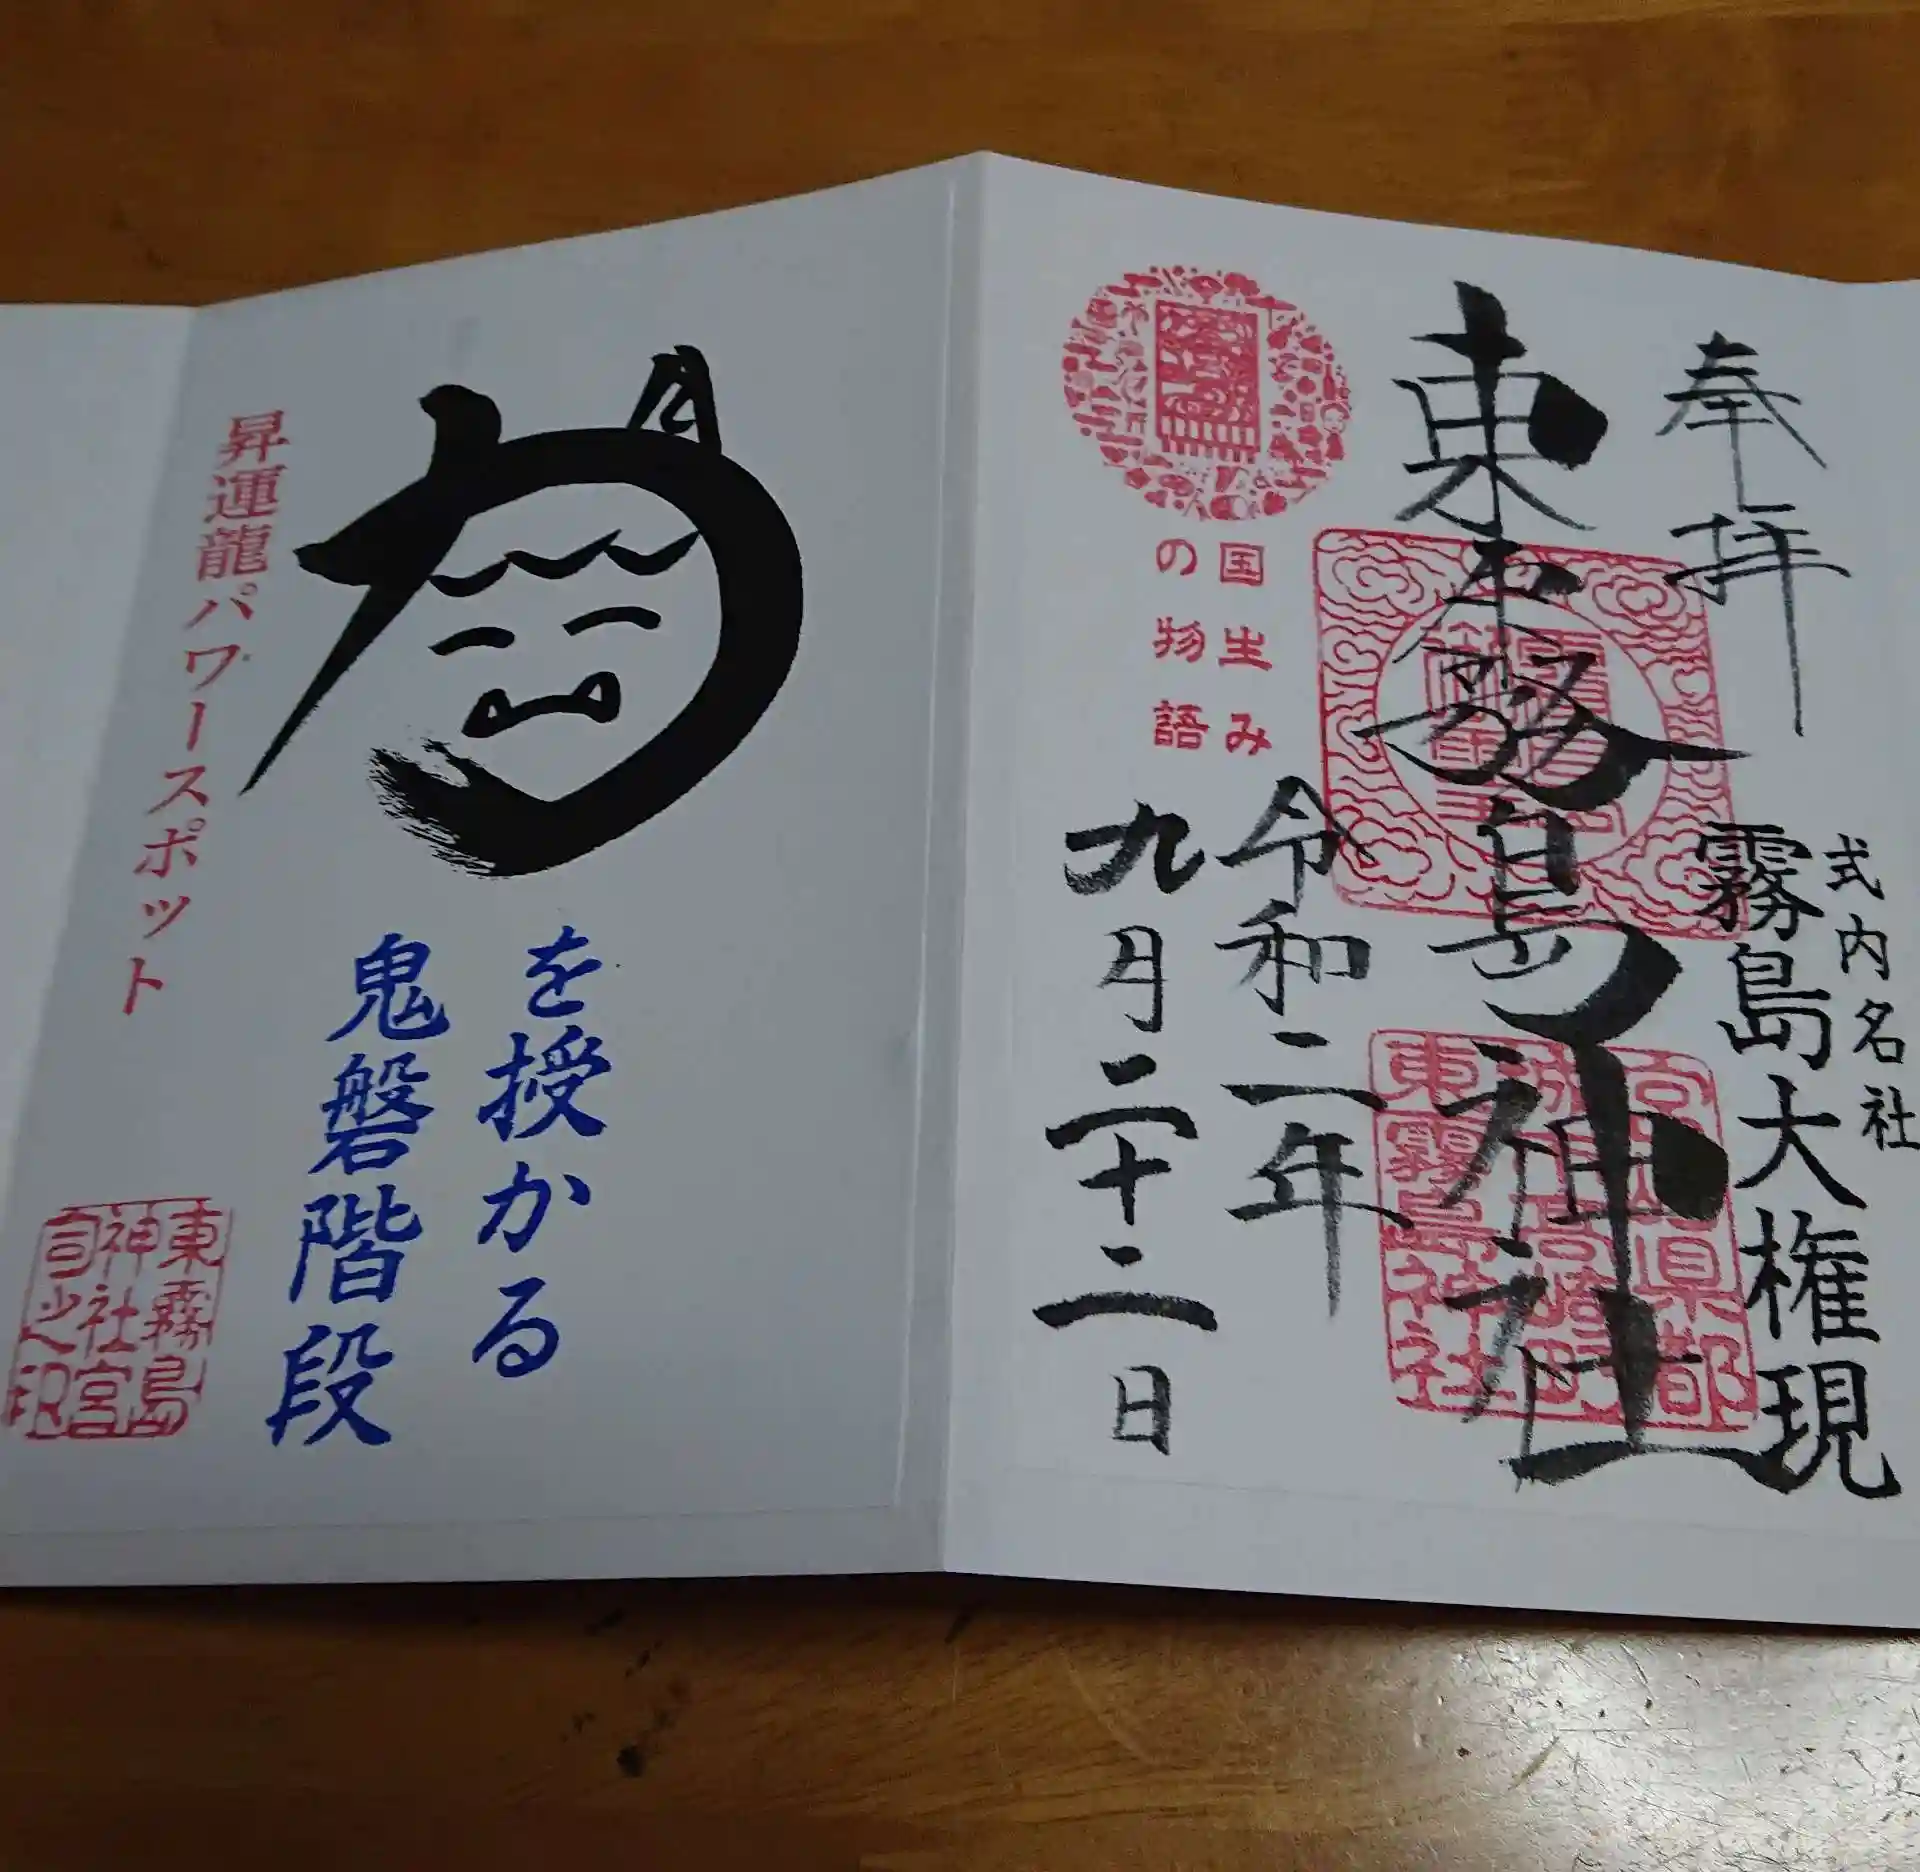 奉拝
式内名社
霧島大権現
東霧島神社
国生み
の物語
令和二年
九月二十二日
東霧島神社
力
を授かる
鬼磐階段
昇運龍パワースポット
東霧島
神社宮
司之印